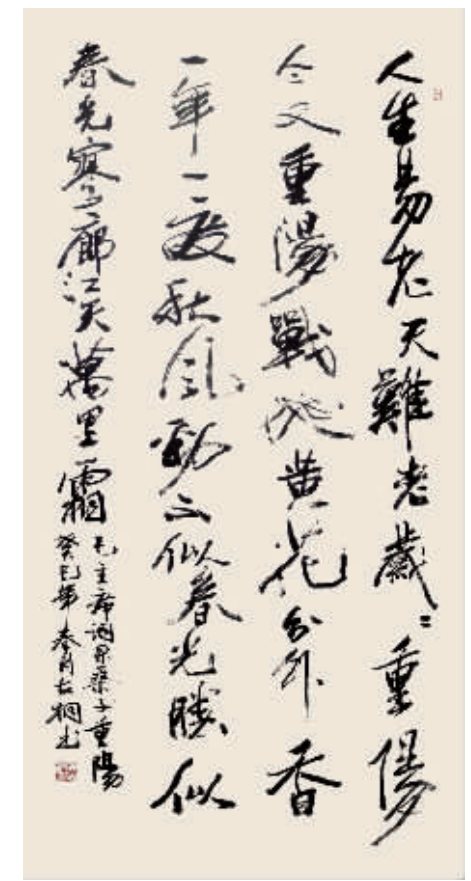 人生易老天難老歲〻重陽
今又重陽戰地黃花分外香
一年一度秋風勁不似春光勝似
春光寥廓江天萬里霜
毛主席詞采桑子重陽
癸巳年春月桐书